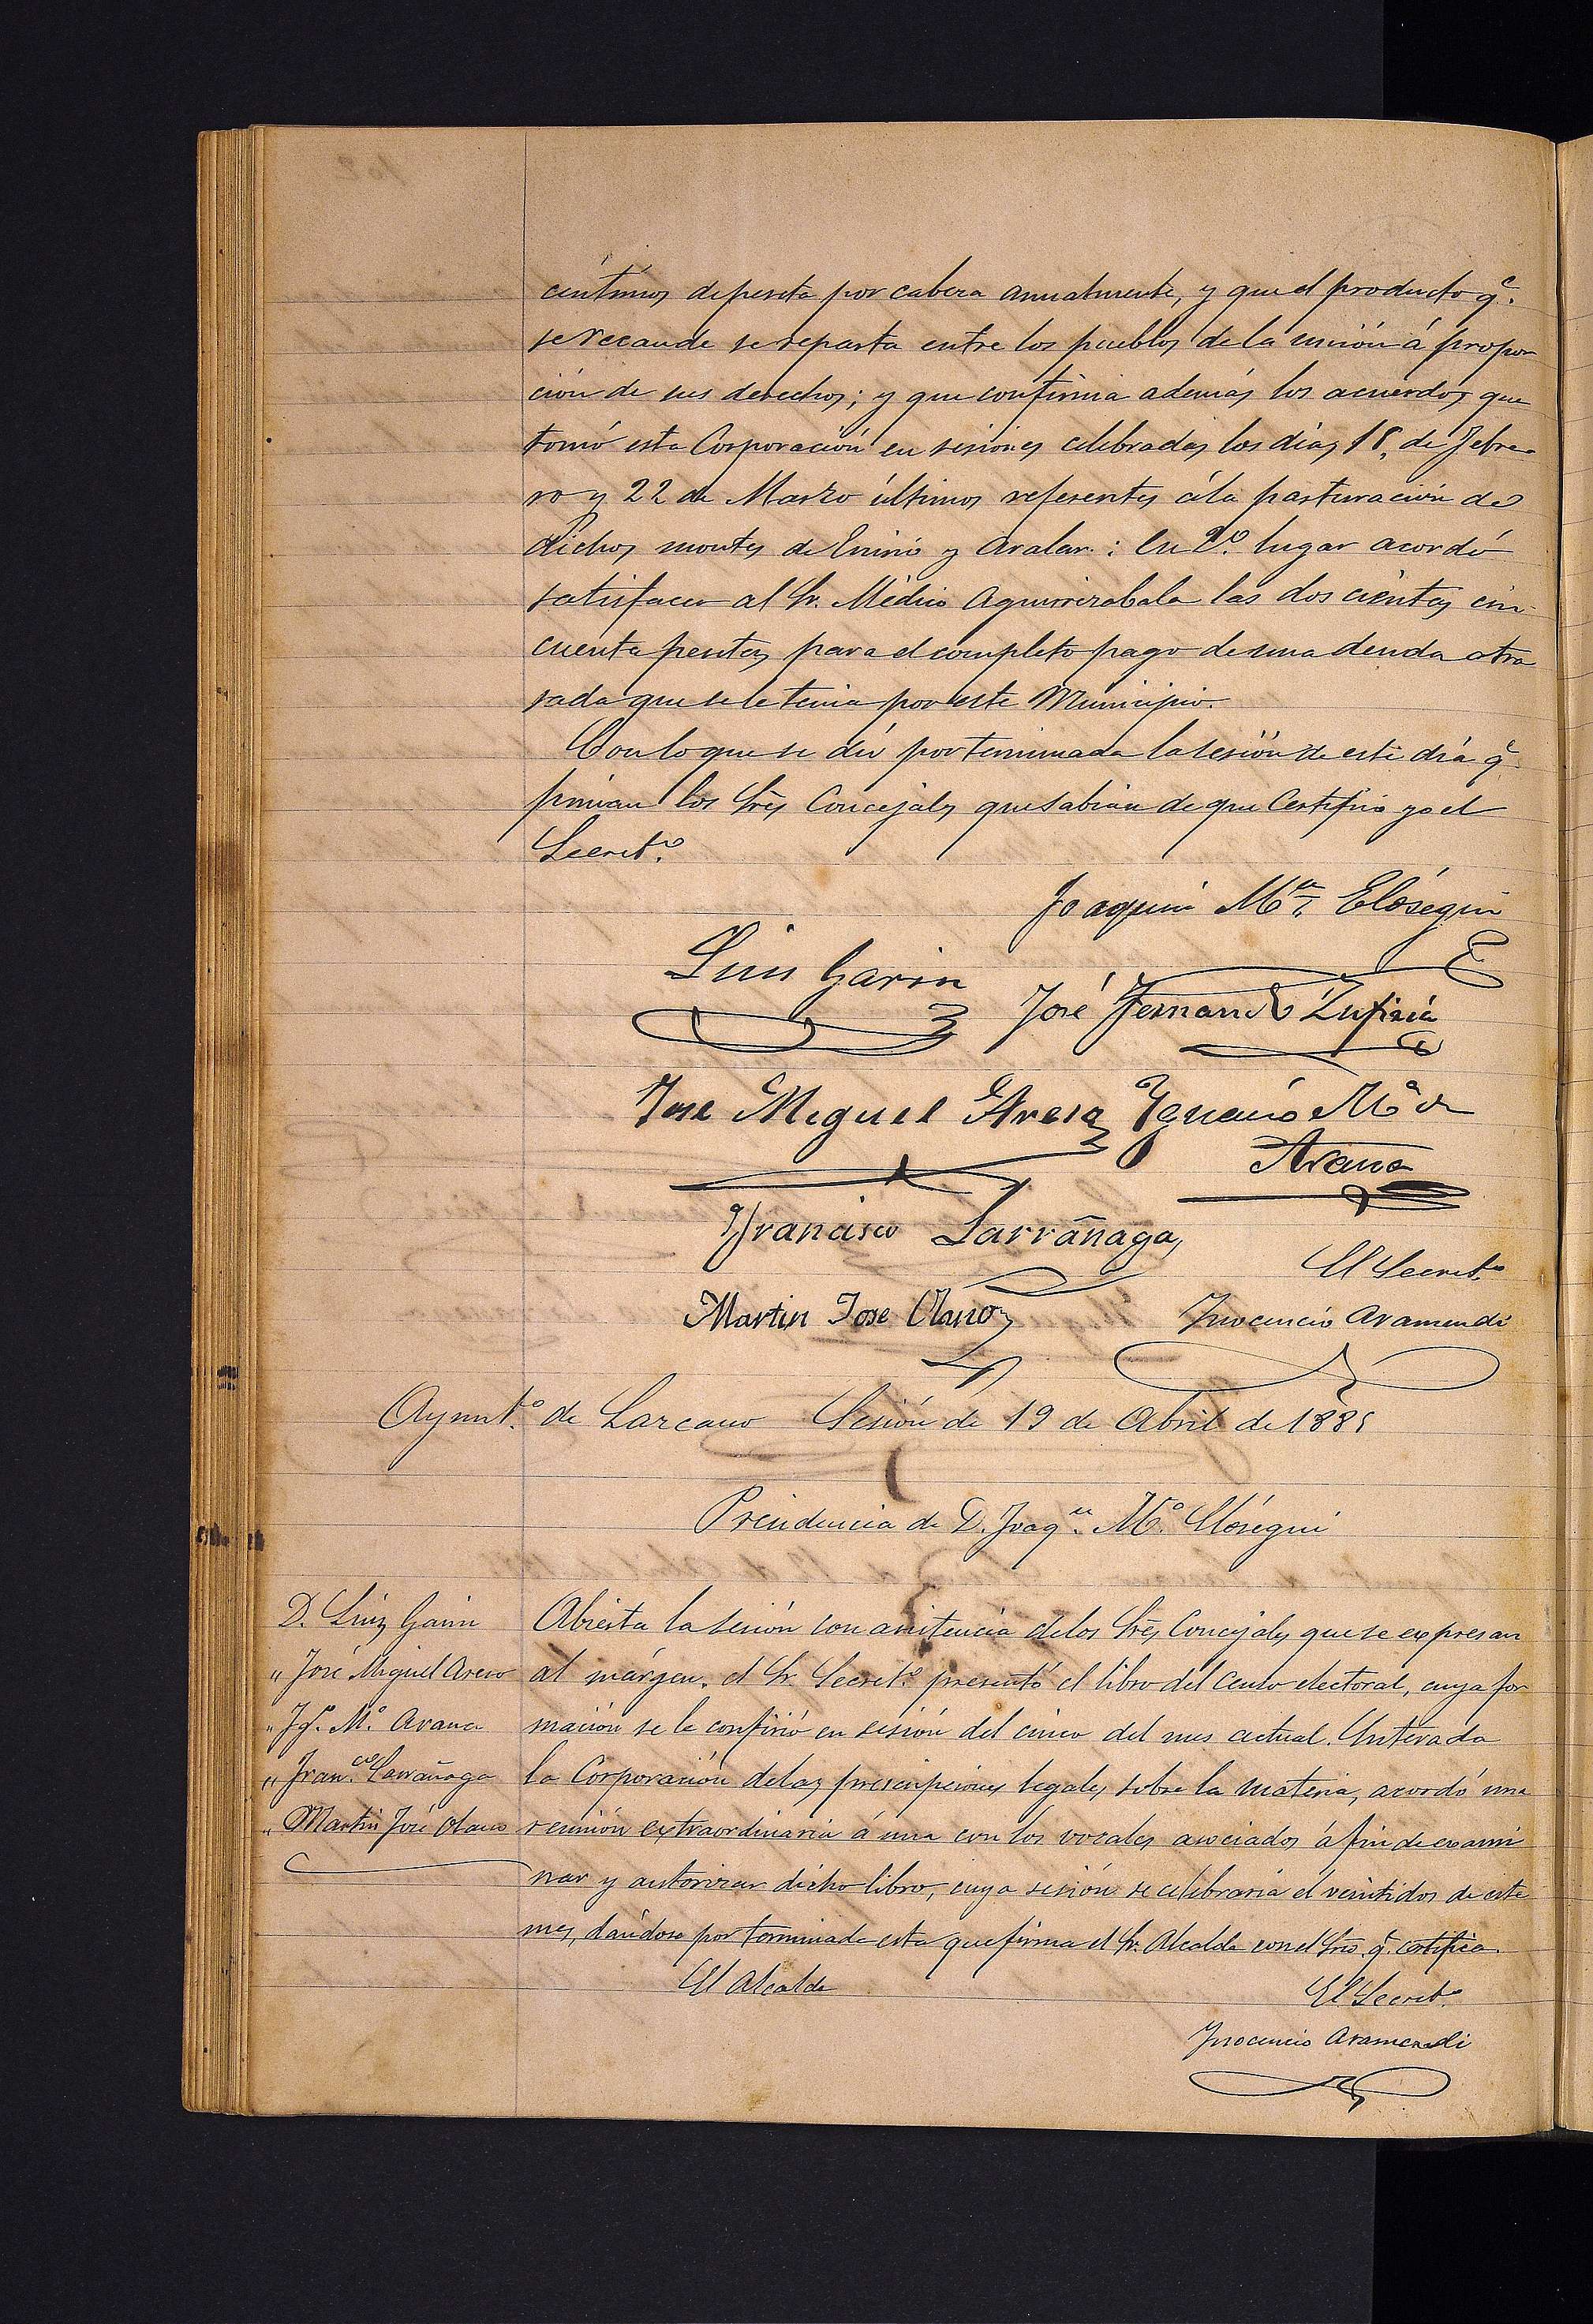 céntimos de peseta por cabeza anualmente, y que el producto q.e
se recaude se reparta entre los pueblos de la unión á propor
ción de sus derechos; y que confirma además los acuerdos que
tomó esta Corporación en sesiones celebradas los días 15, de Febre
ro y 22 de Marzo últimos referentes á la pasturación de
dichos montes de Enirio y Aralar: En 2.º lugar acordó
satisfacer al Sr. Médico Aguirrezabala las dos cientas cin
cuenta pesetas para el completo pago de una deuda atra
sada que se le tenia por este Municipio.
Con lo que se dió por terminada la sesión de este día q.
firman los Sres Concejales que sabían de que Certifico yo el
Secret.º
Joaquin M.a Elósegui
Luis Garin
José Fernando Zufiría
Jose Miguel Areso
Ignacio M.a de
Arana
Francisco Larrãnaga
El Secret.º
Martin Jose Olano
Inocencio Aramendi
Ayunt.º de Lazcano Sesión de 19 de Abril de 1885
Presidencia de D. Joaq.n M.a Elósegui
D. Luis Garin
" José Miguel Areso
" Ig.º M.a Arana
" Fran.co Larrañaga
" Martin José Olano
Abierta la sesión con asistencia de los Sres Concejales que se expresan
al márgen, el Sr. Secret.º presentó el libro del Censo electoral, cuya for
mación se le confirió en sesión del cinco del mes actual. Enterada
la Corporación de las prescripciones legales sobre la materia, acordó una
reunión extraordinaria á una con los vocales asociados á fin de exami
nar y autorizar dicho libro, cuya sesión se celebraría el veintidos de este
mes, dándose por terminada esta que firma el Sr. Alcalde con el Srio q. certifica.
El Alcalde
El Secret.º
Inocencio Aramendi